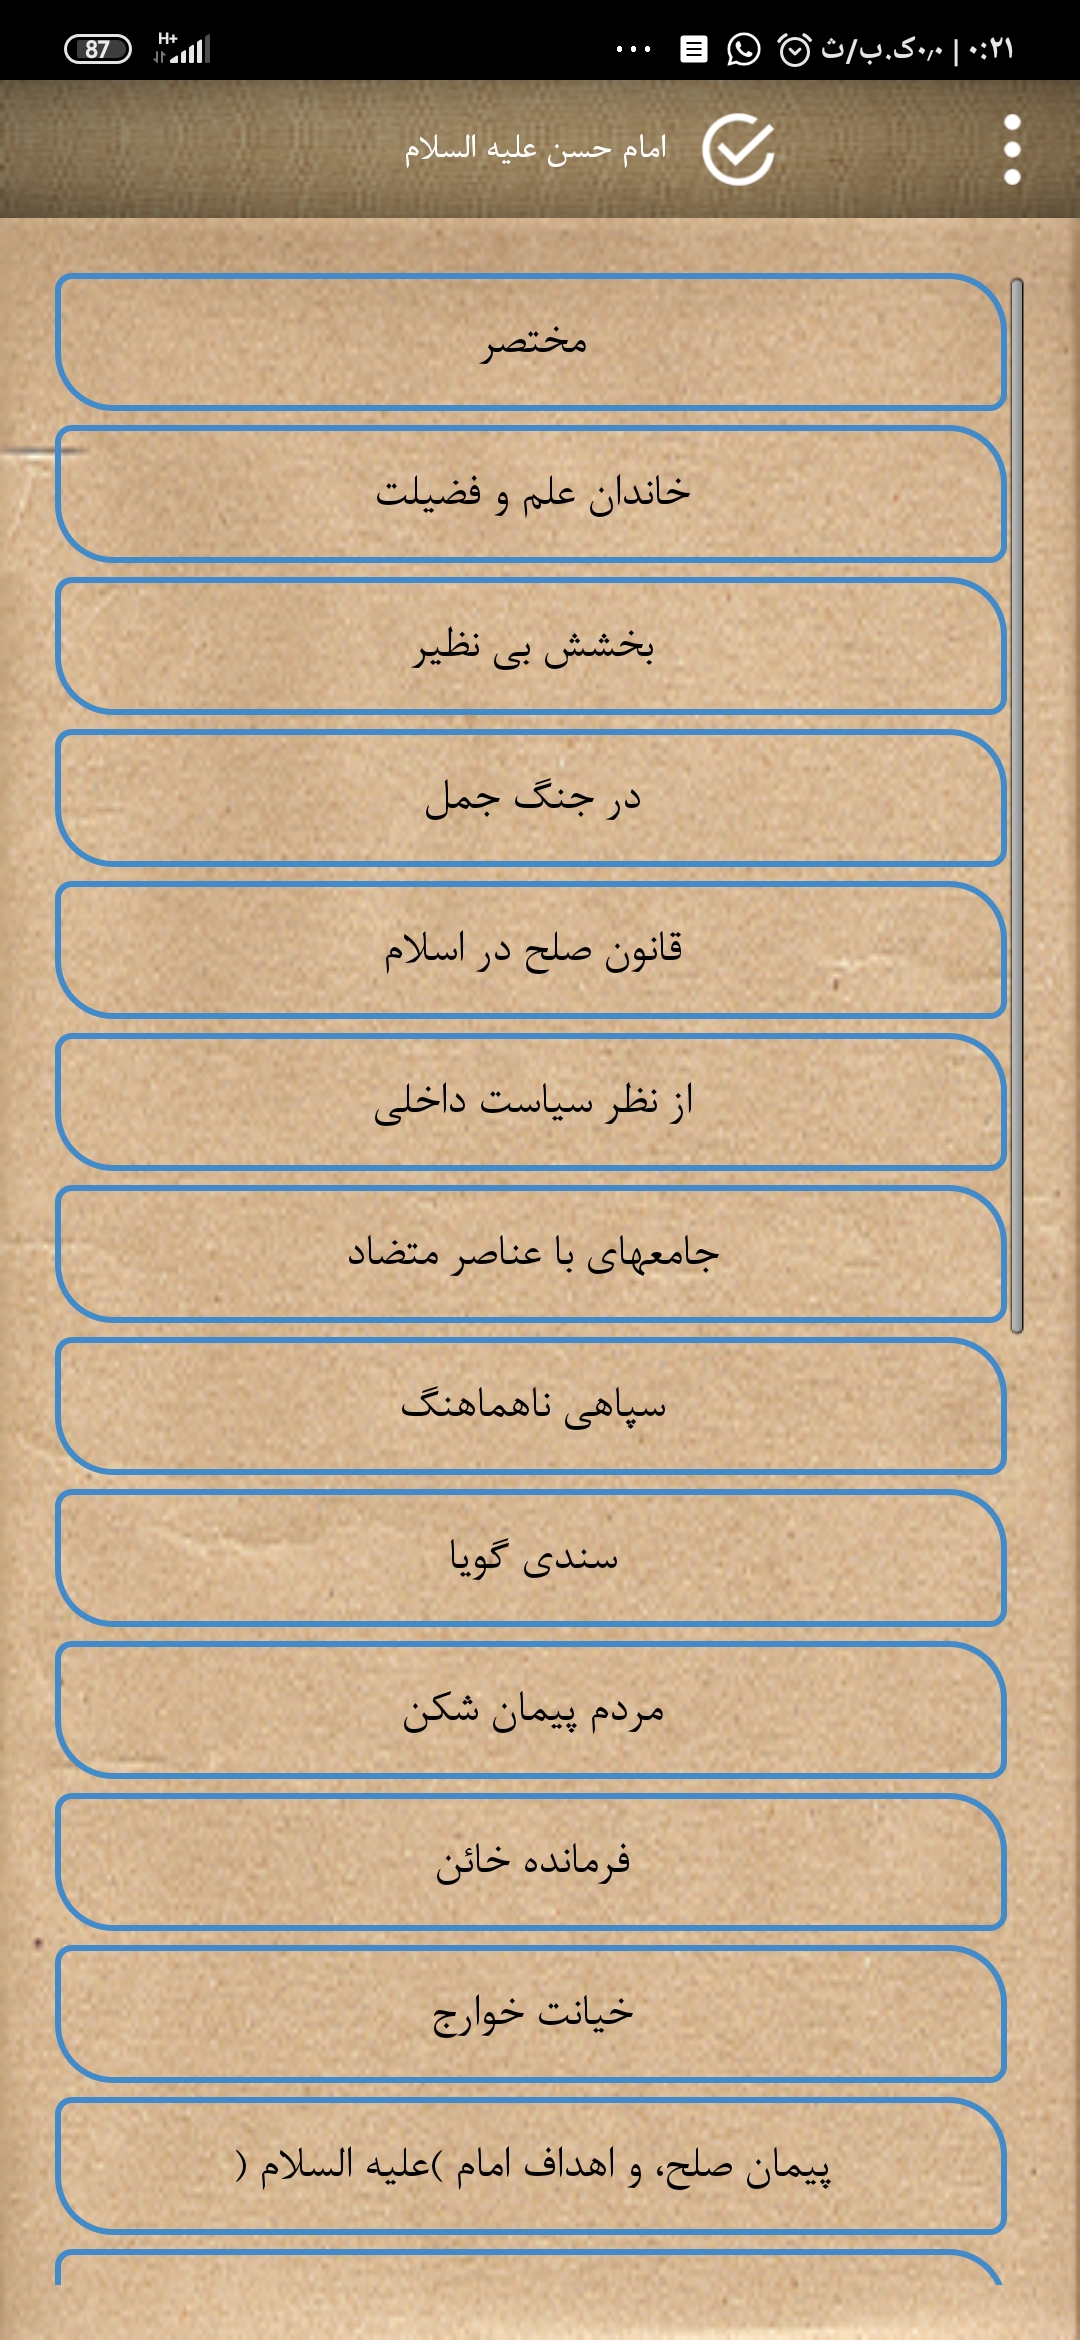 ۰:۲۱ | ۰٫۰ک.ب/ث
H+
87
امام حسن علیه السلام
مختصر
خاندان علم و فضیلت
بخشش بی نظیر
در جنگ جمل
قانون صلح در اسلام
از نظر سیاست داخلی
جامعهای با عناصر متضاد
سپاهی ناهماهنگ
سندی گویا
مردم پیمان شکن
فرمانده خائن
خیانت خوارج
پیمان صلح، و اهداف امام )علیه السلام (